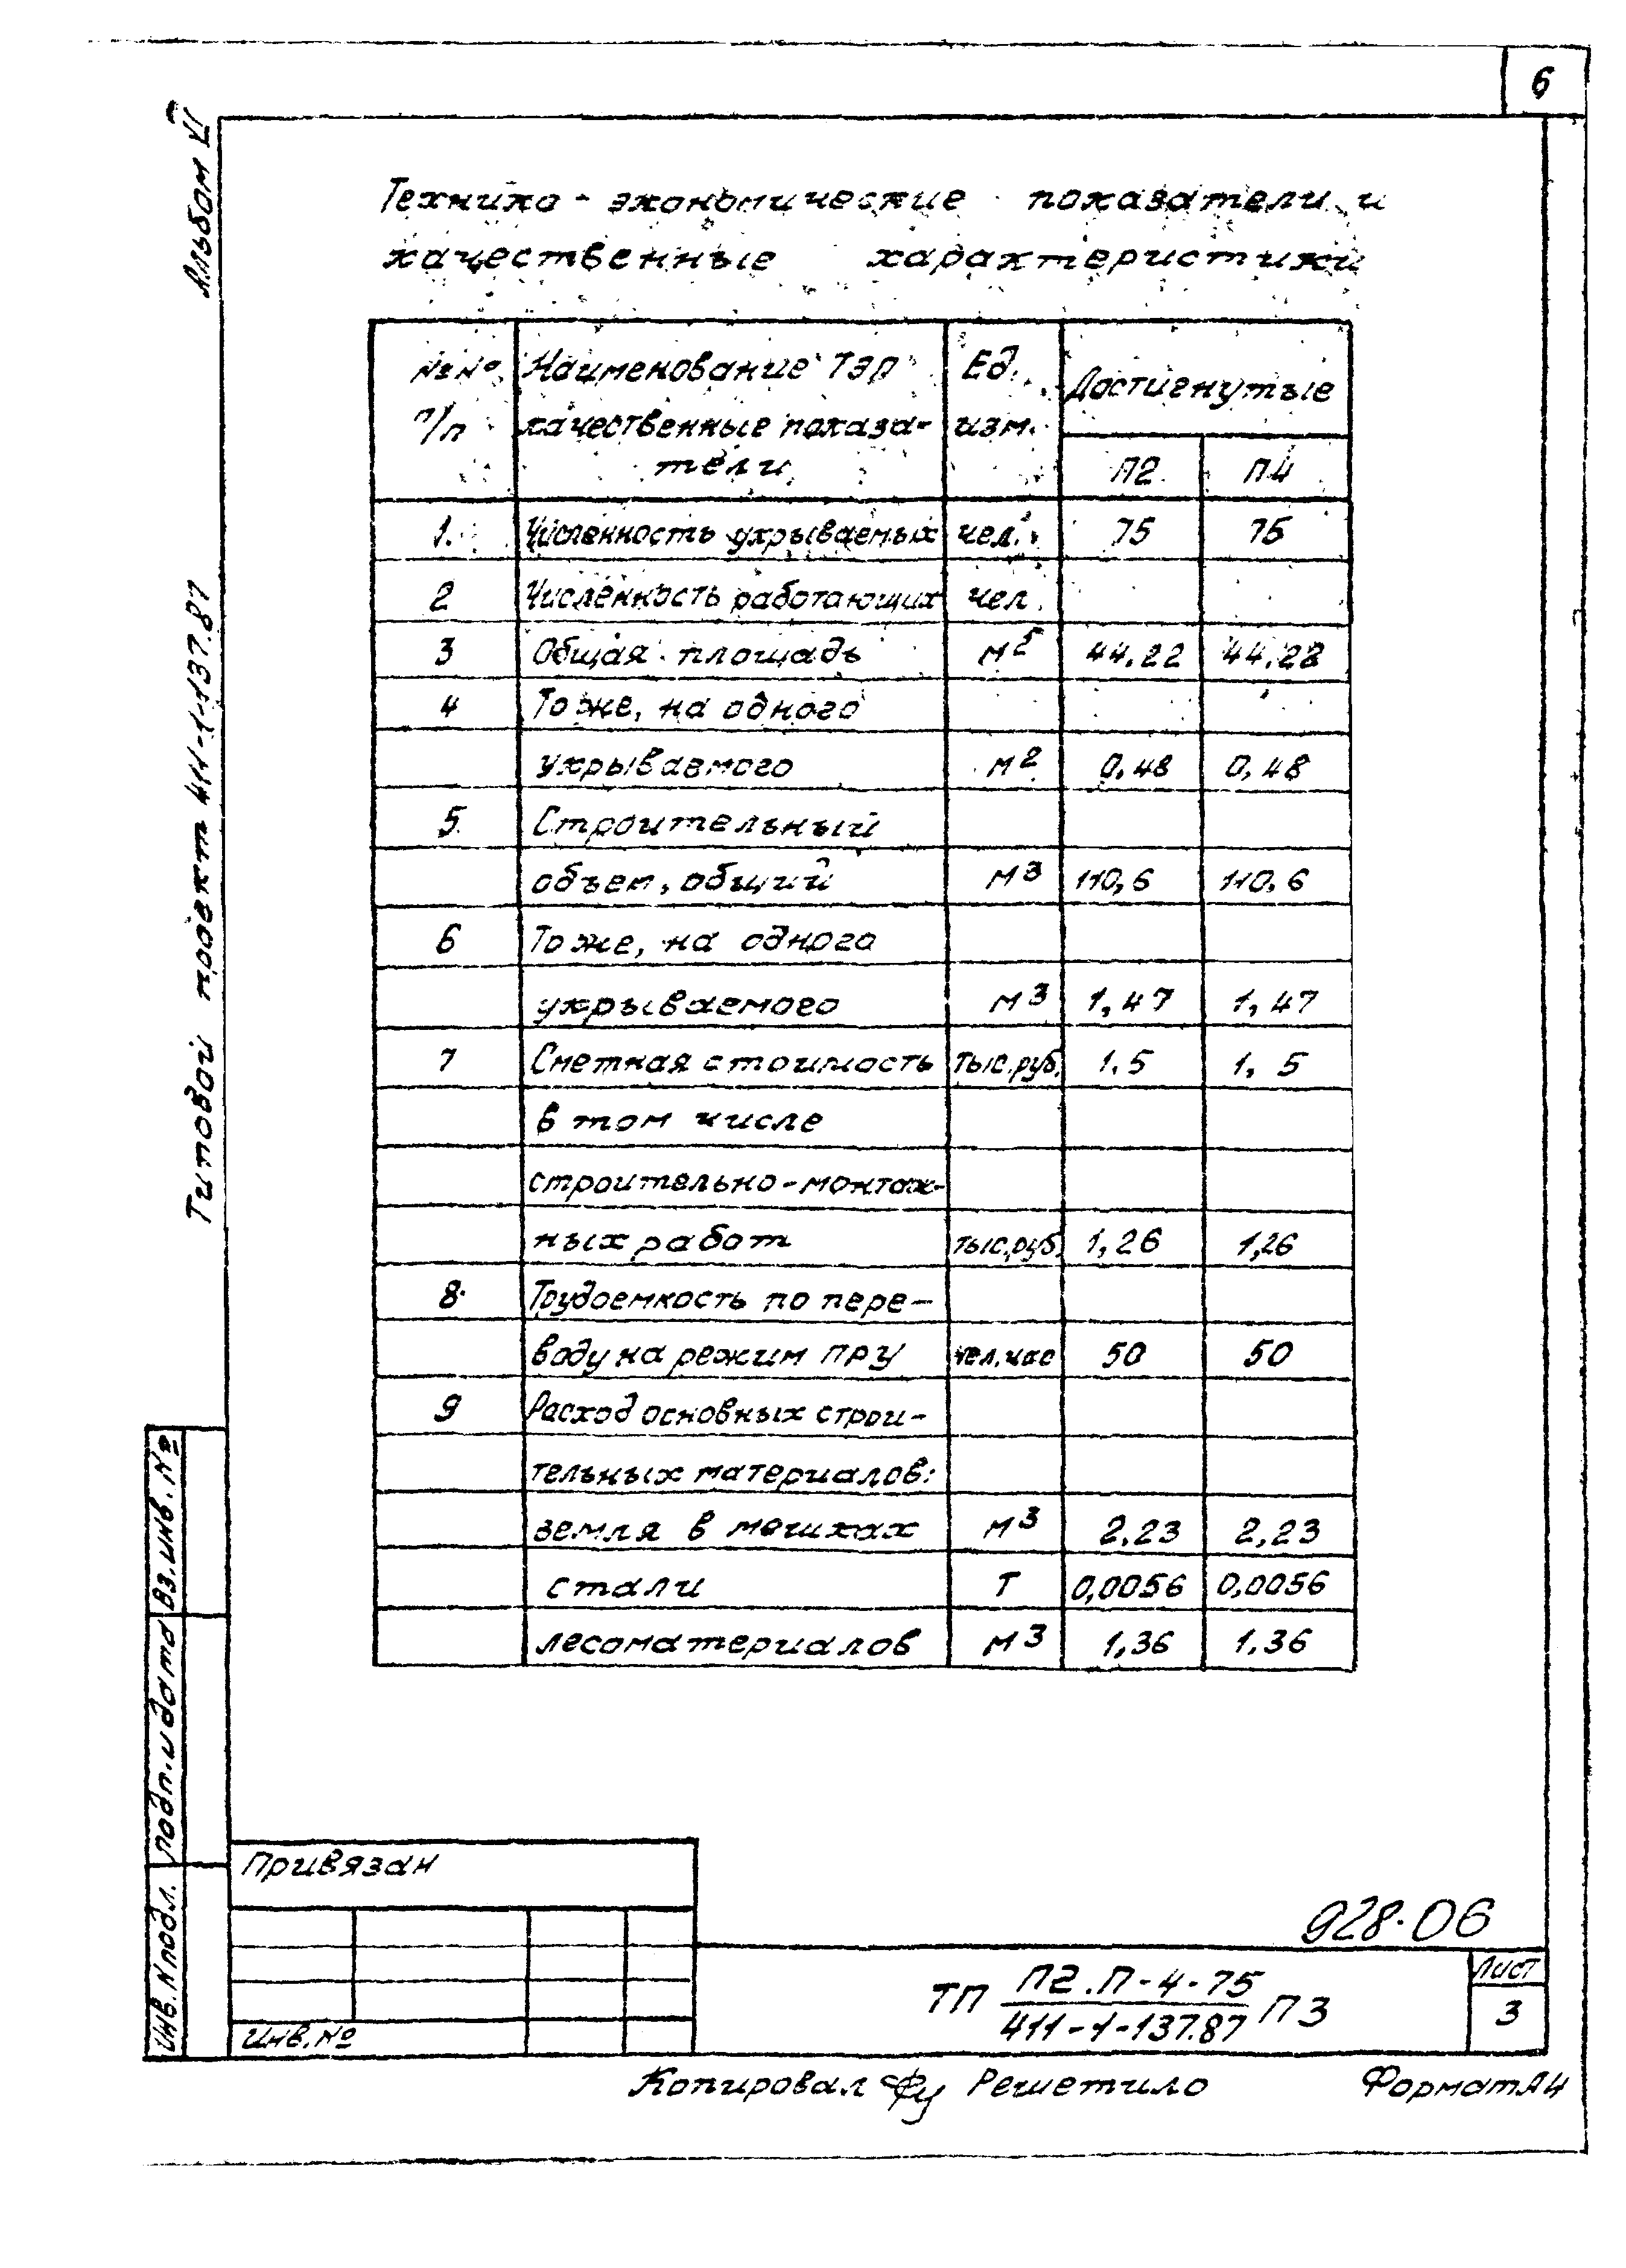 6
Альбом VI
Типовой проект 411-1-137.87
Технико-экономические показатели и
качественные характеристики
№№ п/п | Наименование ТЭП качественные показатели | Ед. изм. | Достигнутые
П2 | П4
1. | Численность укрываемых | чел. | 75 | 75
2 | Численность работающих | чел.
3 | Общая площадь | м2 | 44.22 | 44.22
4 | То же, на одного
укрываемого | м2 | 0,48 | 0,48
5 | Строительный
объем, общий | м3 | 110,6 | 110,6
6 | То же, на одного
укрываемого | м3 | 1,47 | 1,47
7 | Сметная стоимость | тыс.руб. | 1.5 | 1,5
в том числе
строительно-монтаж-
ных работ | тыс.руб. | 1,26 | 1,26
8. | Трудоемкость по пере-
воду на режим ПРУ | чел.час | 50 | 50
9 | Расход основных строи-
тельных материалов:
земля в мешках | м3 | 2,23 | 2,23
стали | Т | 0,0056 | 0,0056
лесоматериалов | м3 | 1,36 | 1.36
Вз.инв.№
подп. и дата
Инв.N подл.
Привязан
Инв.№
928-06
ТП П2.П-4-75 / 411-1-137.87 ПЗ
Лист
3
Копировал Решетило
Формат А4